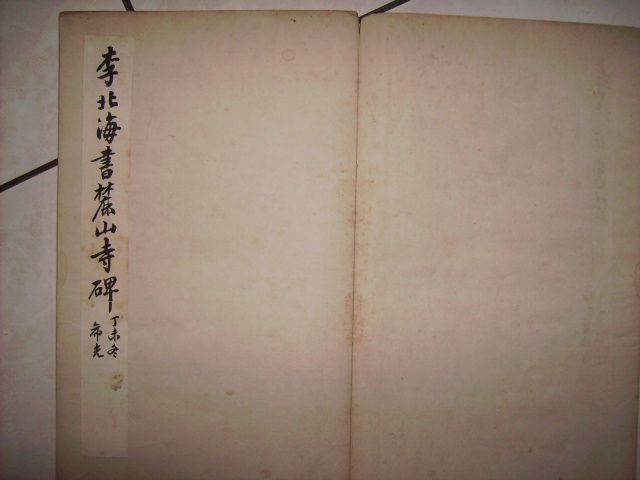 李北海書麓山寺碑
丁未冬
希先